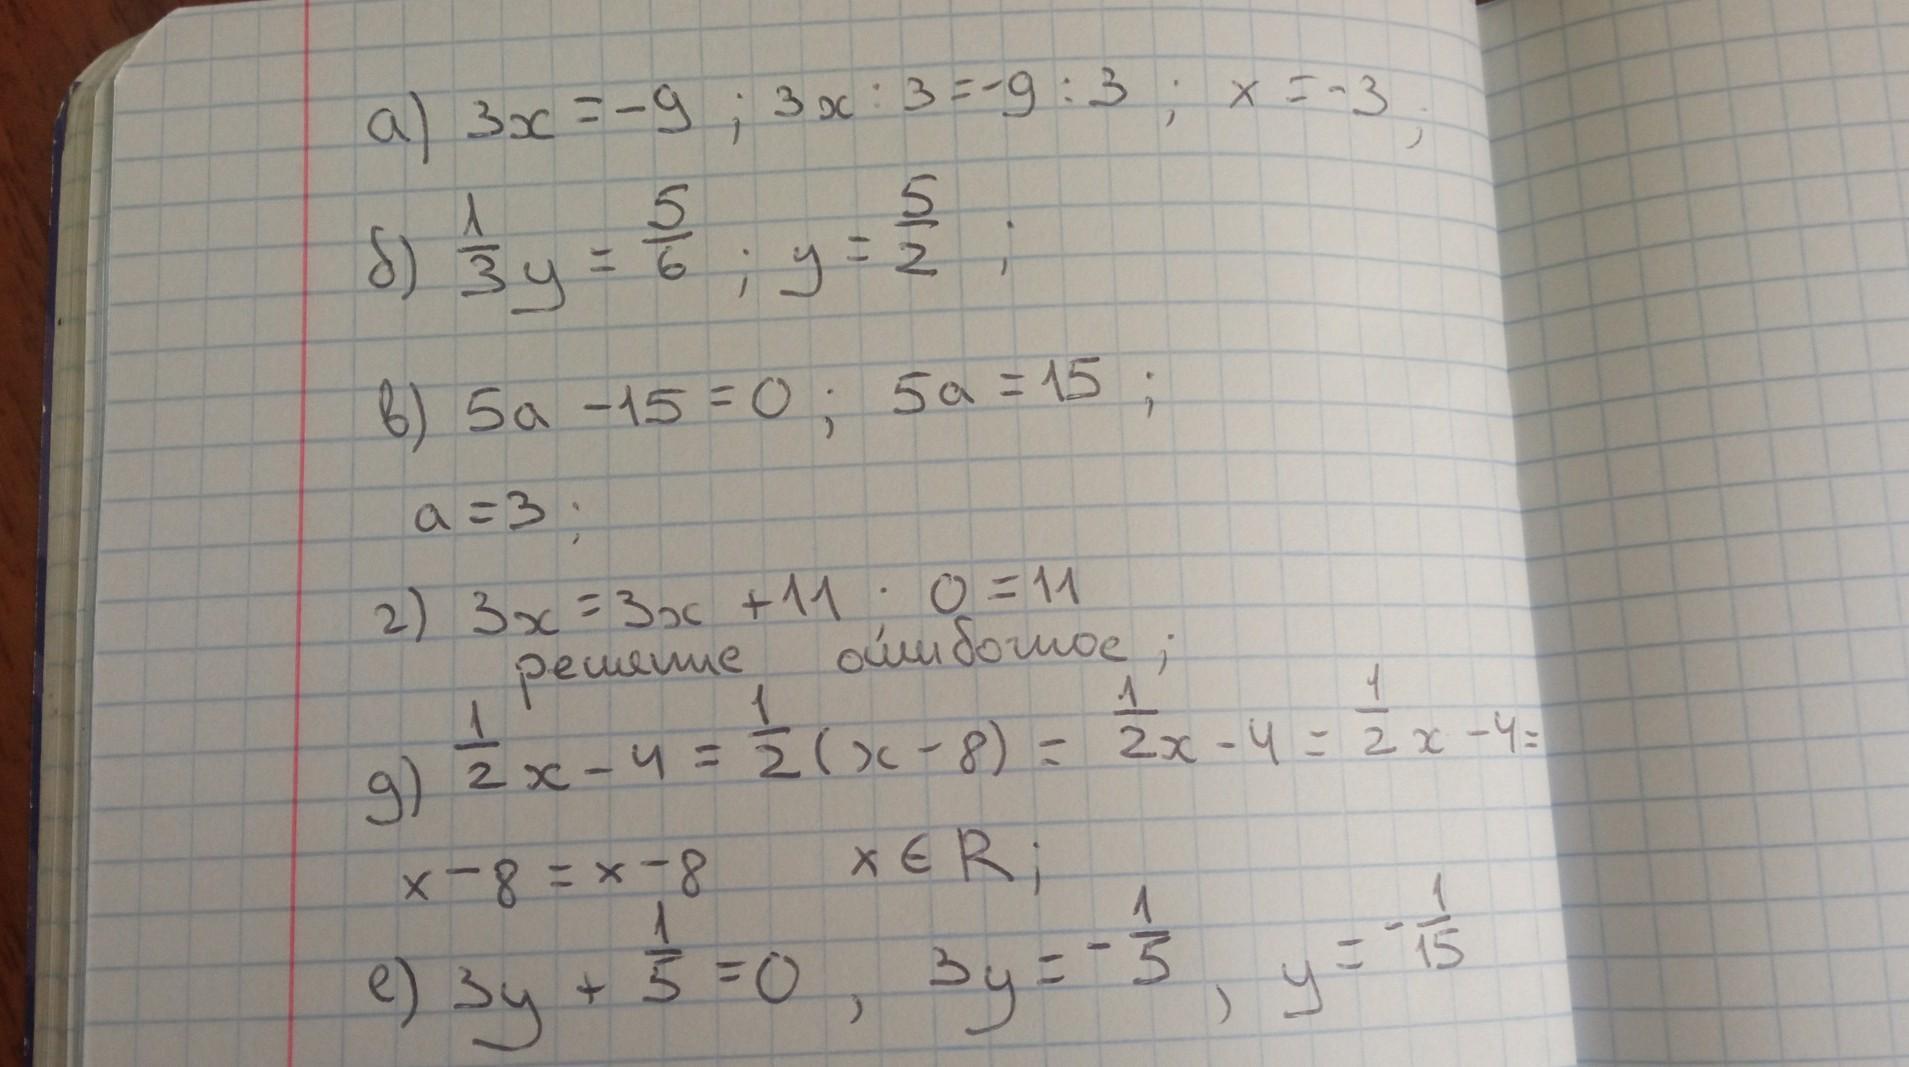 а) 3x = -9 ; 3x : 3 = -9 : 3 ; x = -3 ;
б) 1/3 y = 5/6 ; y = 5/2 ;
в) 5a - 15 = 0 ; 5a = 15 ;
a = 3 ;
г) 3x = 3x + 11 · 0 = 11
решение ошибочное ;
д) 1/2 x - 4 = 1/2 (x - 8) = 1/2 x - 4 = 1/2 x - 4 =
x - 8 = x - 8 x ∈ R ;
е) 3y + 1/5 = 0 , 3y = - 1/5 , y = - 1/15